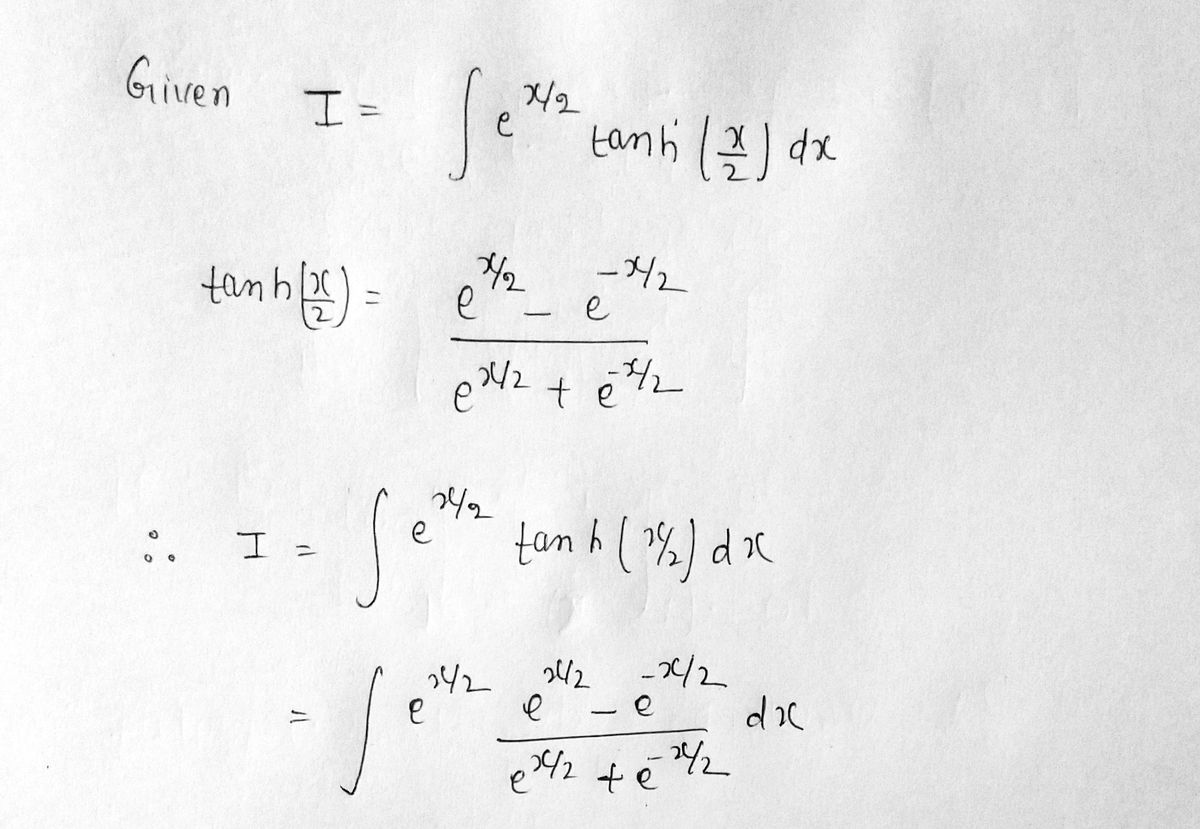 Given I = ∫ e^{x/2} tanh (x/2) dx
tanh (x/2) = (e^{x/2} - e^{-x/2}) / (e^{x/2} + e^{-x/2})
∴ I = ∫ e^{x/2} tanh (x/2) dx
= ∫ e^{x/2} (e^{x/2} - e^{-x/2}) / (e^{x/2} + e^{-x/2}) dx